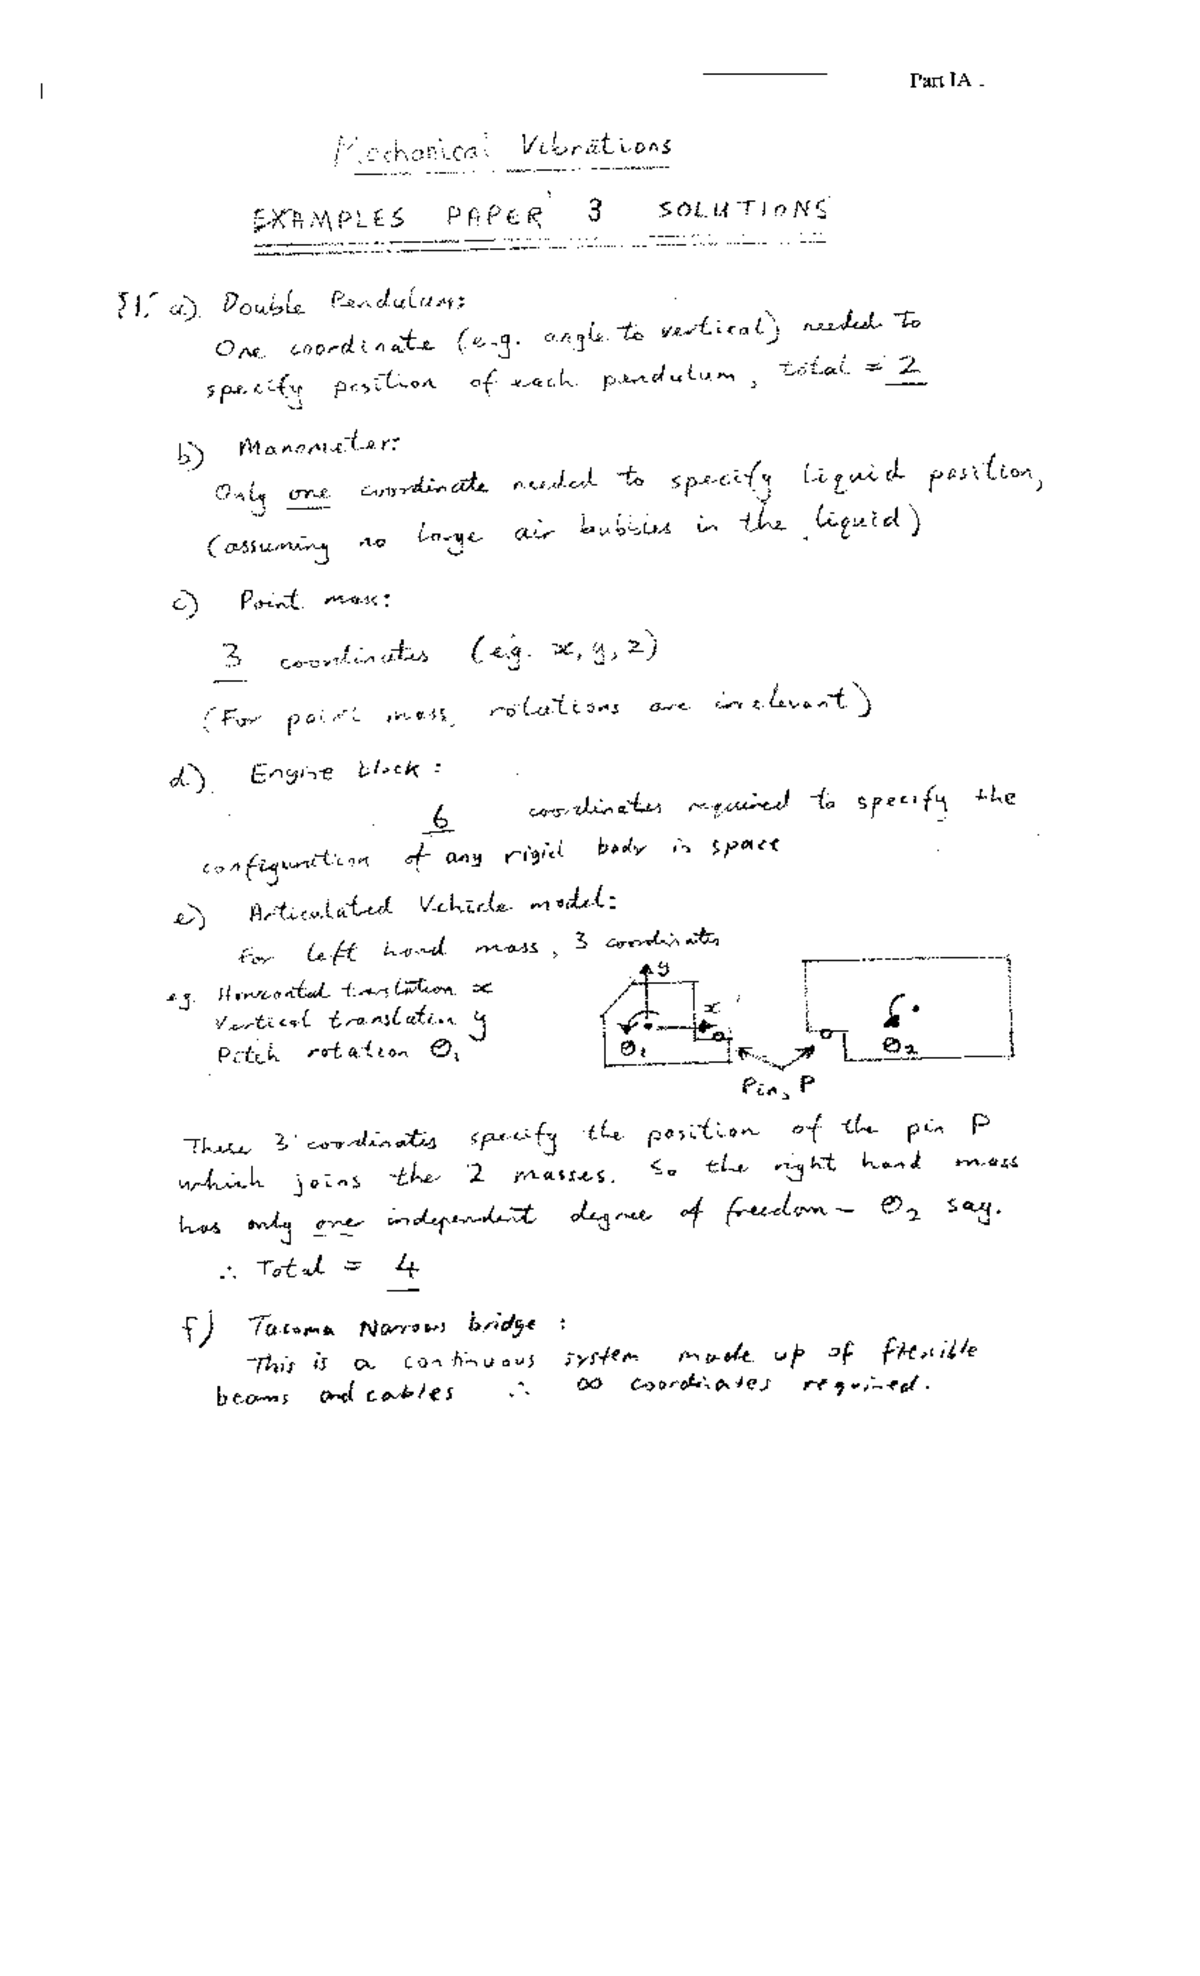 Part IA .
Mechanical Vibrations
EXAMPLES PAPER 3 SOLUTIONS
§1. a) Double Pendulum:
One coordinate (e.g. angle to vertical) needed to
specify position of each pendulum, total = 2
b) Manometer:
Only one coordinate needed to specify liquid position,
(assuming no large air bubbles in the liquid)
c) Point mass:
3 coordinates (e.g. x, y, z)
(For point mass, rotations are irrelevant)
d) Engine block:
6 coordinates required to specify the
configuration of any rigid body in space
e) Articulated Vehicle model:
For left hand mass, 3 coordinates
e.g. Horizontal translation x
Vertical translation y
Pitch rotation Θ₁
y
x
Θ₁
Θ₂
Pin, P
These 3 coordinates specify the position of the pin P
which joins the 2 masses. So the right hand mass
has only one independent degree of freedom - Θ₂ say.
∴ Total = 4
f) Tacoma Narrows bridge:
This is a continuous system made up of flexible
beams and cables ∴ ∞ coordinates required.